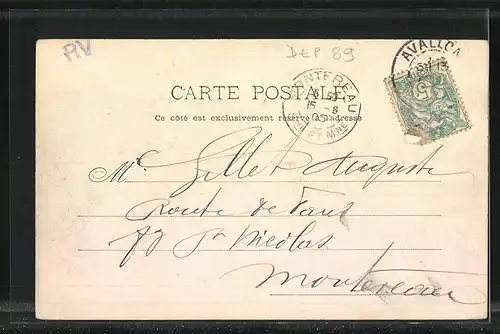 RV
DEP 89
AVALLON
CARTE POSTALE
MONTEREAU
Ce côté est exclusivement réservé à l'adresse
SNE ET MNE
5
Mr Gillet Auguste
Route de Paris
Fg St Nicolas
Montereau